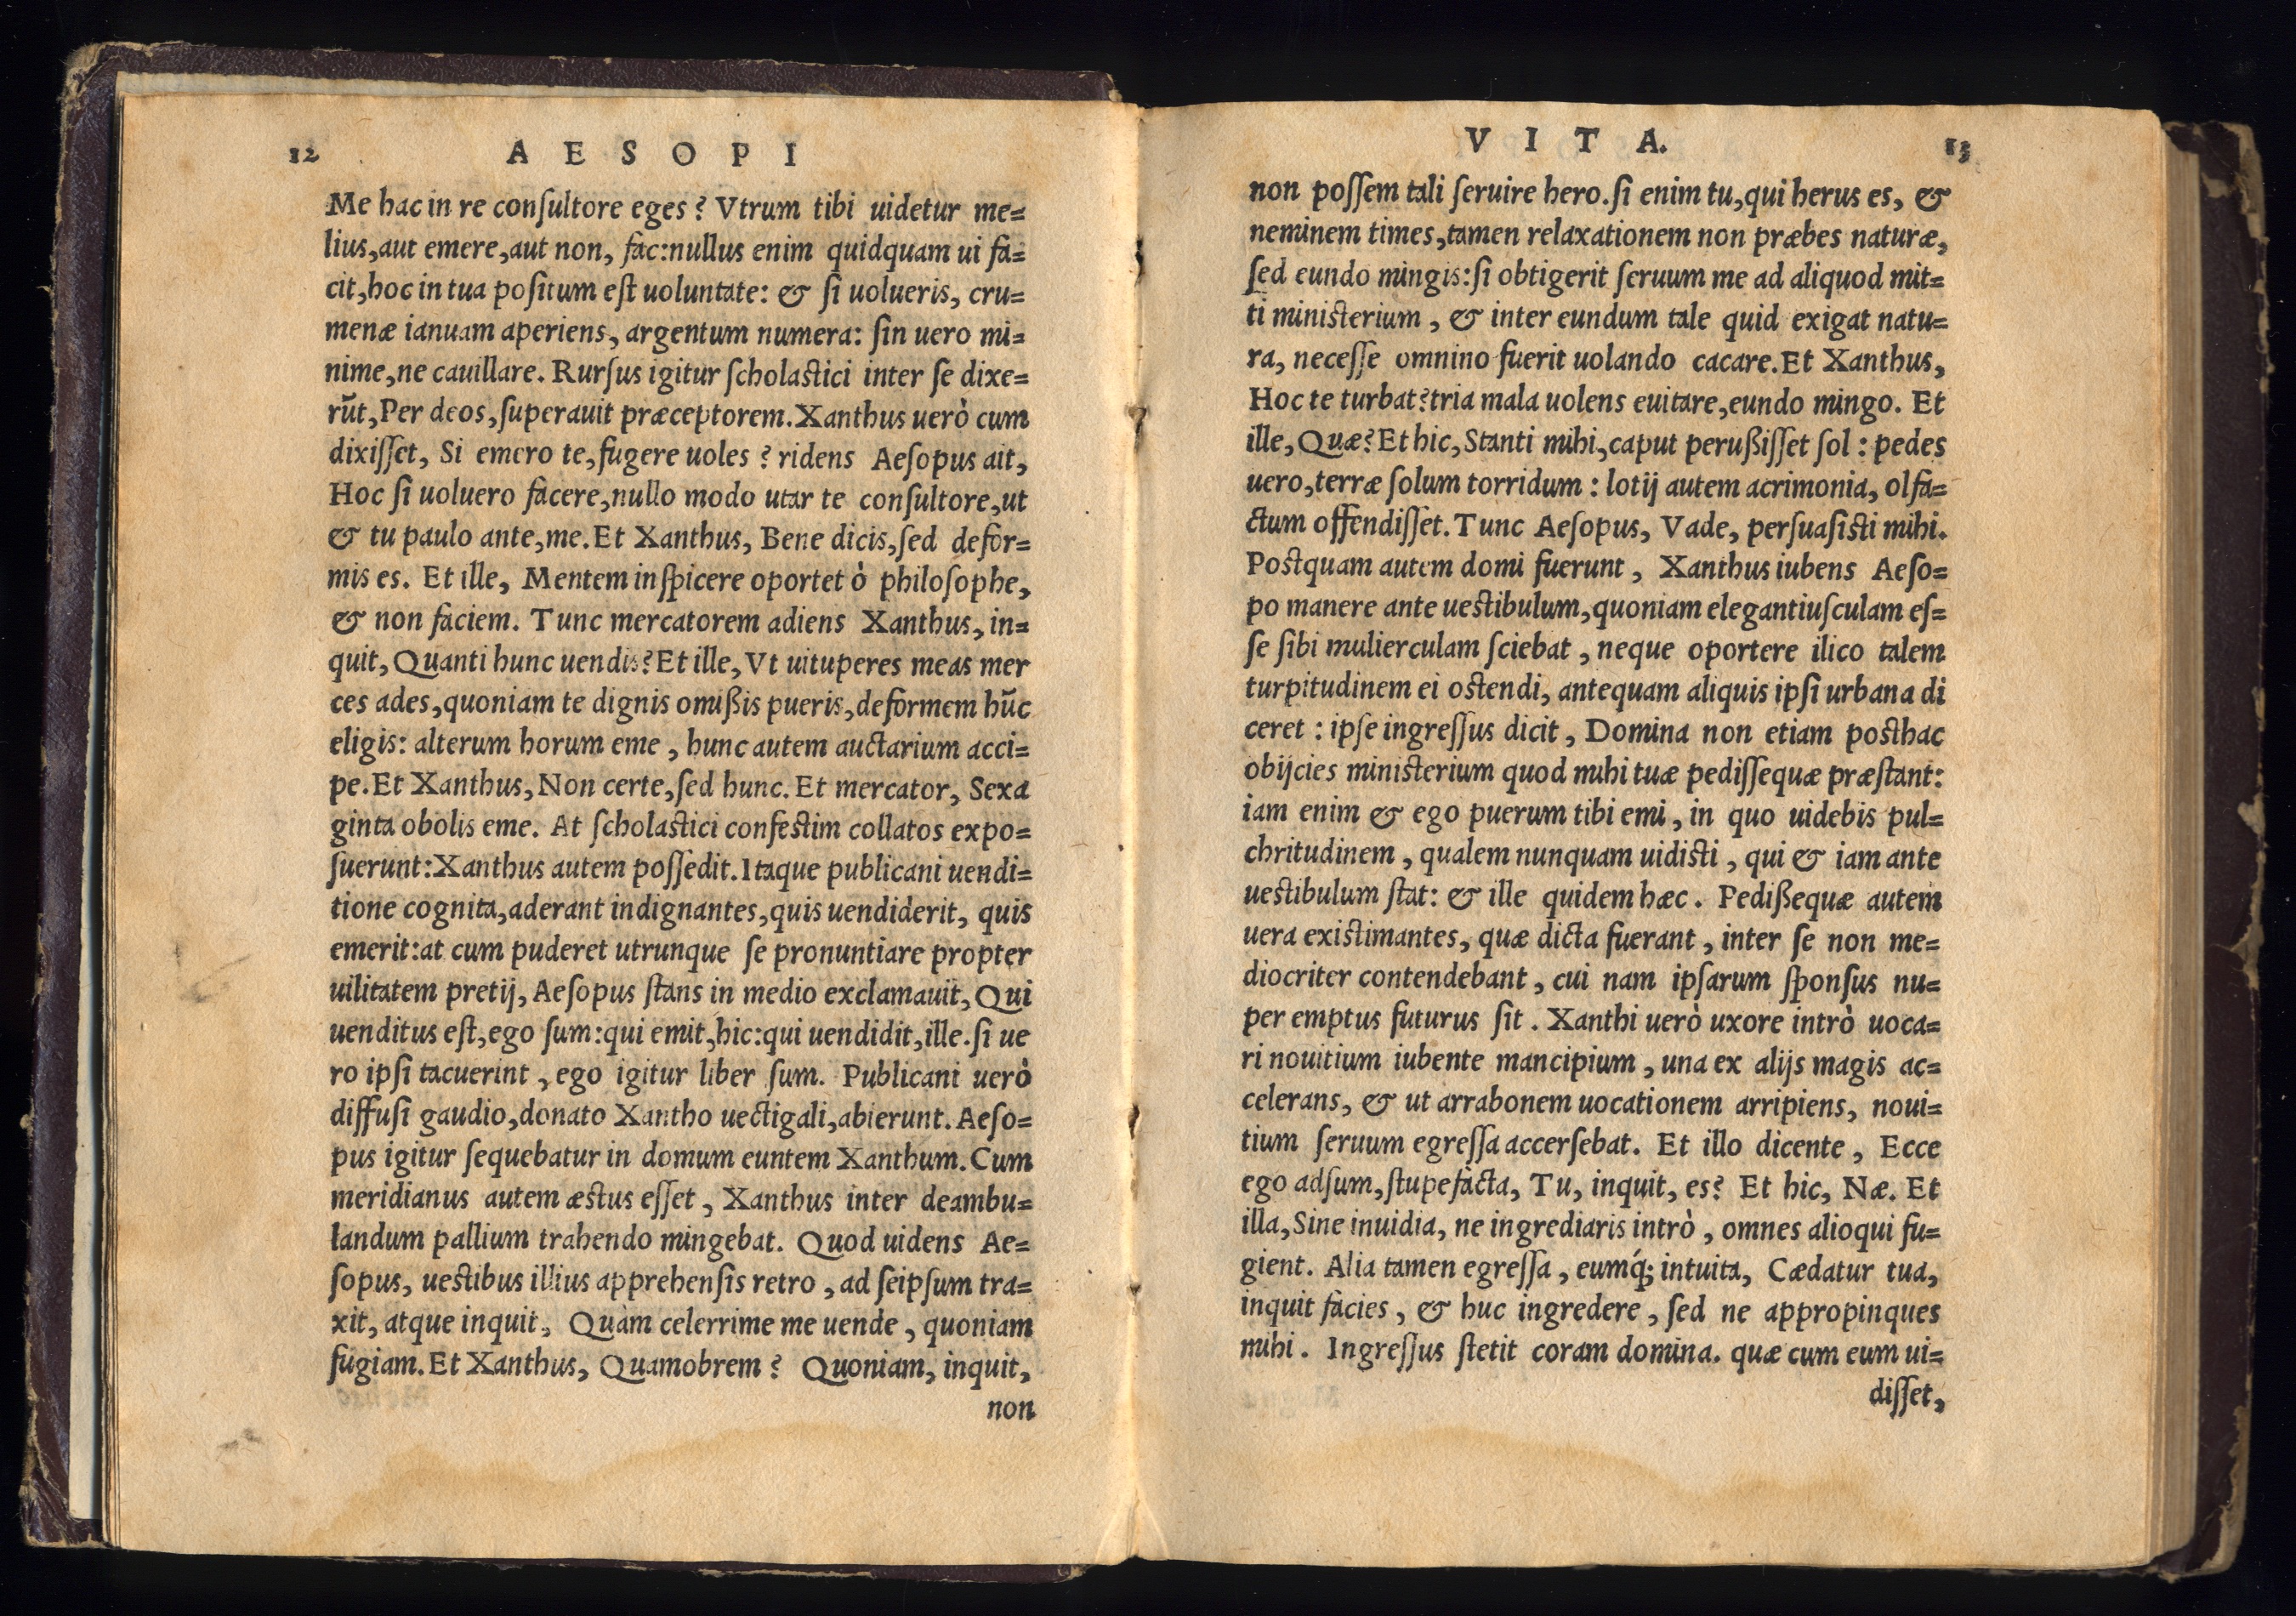 12 AESOPI
Me hac in re conſultore eges? Vtrum tibi uidetur me=
lius,aut emere,aut non, fac:nullus enim quidquam ui fa=
cit,hoc in tua poſitum eſt uoluntate: & ſi uolueris, cru=
menæ ianuam aperiens, argentum numera: ſin uero mi=
nime,ne cauillare. Rurſus igitur ſcholaſtici inter ſe dixe=
rūt,Per deos,ſuperauit præceptorem.Xanthus uerò cum
dixiſſet, Si emero te,fugere uoles? ridens Aeſopus ait,
Hoc ſi uoluero facere,nullo modo utar te conſultore,ut
& tu paulo ante,me.Et Xanthus, Bene dicis,ſed defor=
mis es. Et ille, Mentem inſpicere oportet ò philoſophe,
& non faciem. Tunc mercatorem adiens Xanthus, in=
quit, Quanti hunc uendis?Et ille, Vt uituperes meas mer
ces ades,quoniam te dignis omißis pueris,deformem hūc
eligis: alterum horum eme, hunc autem auctarium acci=
pe.Et Xanthus, Non certe,ſed hunc. Et mercator, Sexa
ginta obolis eme. At ſcholaſtici confeſtim collatos expo=
ſuerunt:Xanthus autem poſſedit.Itaque publicani uendi=
tione cognita,aderant indignantes,quis uendiderit, quis
emerit:at cum puderet utrunque ſe pronuntiare propter
uilitatem pretij, Aeſopus ſtans in medio exclamauit, Qui
uenditus eſt,ego ſum:qui emit,hic:qui uendidit,ille.ſi ue
ro ipſi tacuerint, ego igitur liber ſum. Publicani uerò
diffuſi gaudio,donato Xantho uectigali,abierunt. Aeſo=
pus igitur ſequebatur in domum euntem Xanthum. Cum
meridianus autem æſtus eſſet, Xanthus inter deambu=
landum pallium trahendo mingebat. Quod uidens Ae=
ſopus, ueſtibus illius apprehenſis retro, ad ſeipſum tra=
xit, atque inquit, Quàm celerrime me uende, quoniam
fugiam. Et Xanthus, Quamobrem? Quoniam, inquit,
non
VITA. 13
non poſſem tali ſeruire hero.ſi enim tu,qui herus es, &
neminem times,tamen relaxationem non præbes naturæ,
ſed eundo mingis:ſi obtigerit ſeruum me ad aliquod mit=
ti miniſterium, & inter eundum tale quid exigat natu=
ra, neceſſe omnino fuerit uolando cacare.Et Xanthus,
Hoc te turbat?tria mala uolens euitare,eundo mingo. Et
ille, Quæ?Et hic, Stanti mihi,caput perußiſſet ſol: pedes
uero,terræ ſolum torridum: lotij autem acrimonia, olfa=
ctum offendiſſet. Tunc Aeſopus, Vade, perſuaſiſti mihi.
Poſtquam autem domi fuerunt, Xanthus iubens Aeſo=
po manere ante ueſtibulum,quoniam elegantiuſculam eſ=
ſe ſibi mulierculam ſciebat, neque oportere ilico talem
turpitudinem ei oſtendi, antequam aliquis ipſi urbana di
ceret: ipſe ingreſſus dicit, Domina non etiam poſthac
obijcies miniſterium quod mihi tuæ pediſſequæ præſtant:
iam enim & ego puerum tibi emi, in quo uidebis pul=
chritudinem, qualem nunquam uidiſti, qui & iam ante
ueſtibulum ſtat: & ille quidem hæc. Pedißequæ autem
uera exiſtimantes, quæ dicta fuerant, inter ſe non me=
diocriter contendebant, cui nam ipſarum ſponſus nu=
per emptus futurus ſit. Xanthi uerò uxore intrò uoca=
ri nouitium iubente mancipium, una ex alijs magis ac=
celerans, & ut arrabonem uocationem arripiens, noui=
tium ſeruum egreſſa accerſebat. Et illo dicente, Ecce
ego adſum,ſtupefacta, Tu, inquit, es? Et hic, Næ. Et
illa, Sine inuidia, ne ingrediaris intrò, omnes alioqui fu=
gient. Alia tamen egreſſa, eumq́; intuita, Cædatur tua,
inquit facies, & huc ingredere, ſed ne appropinques
mihi. Ingreſſus ſtetit coram domina. quæ cum eum ui=
diſſet,